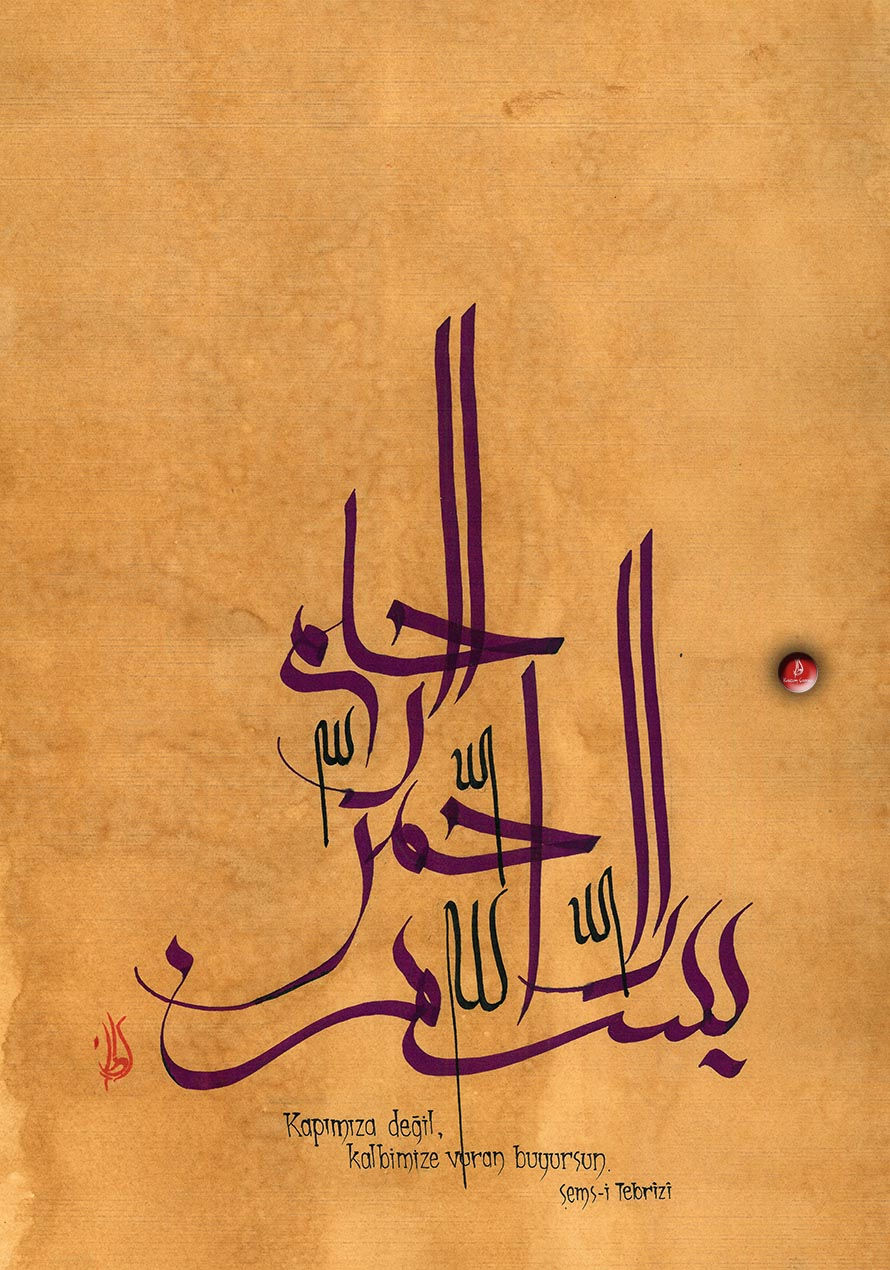 بسم الله الرحمن الرحيم
Kapımıza değil,
kalbimize vuran buyursun.
Şems-i Tebrîzî